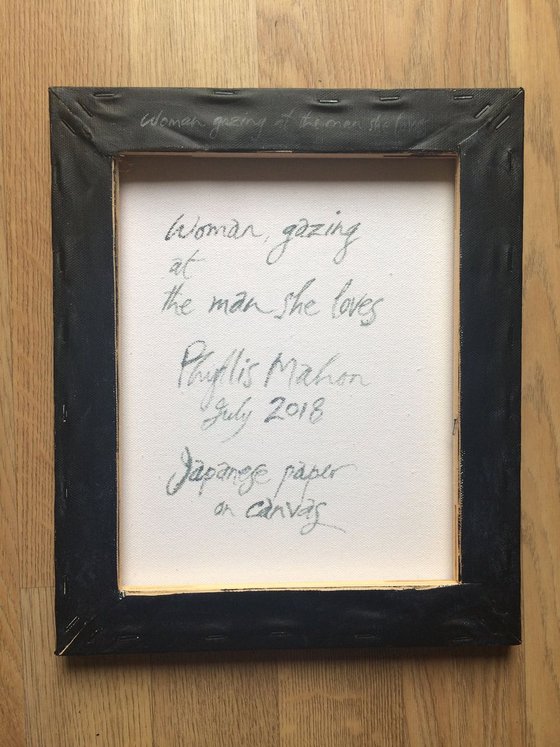 Woman gazing at the man she loves
Woman, gazing
at
the man she loves
Phyllis Mahon
July 2018
Japanese paper
on canvas